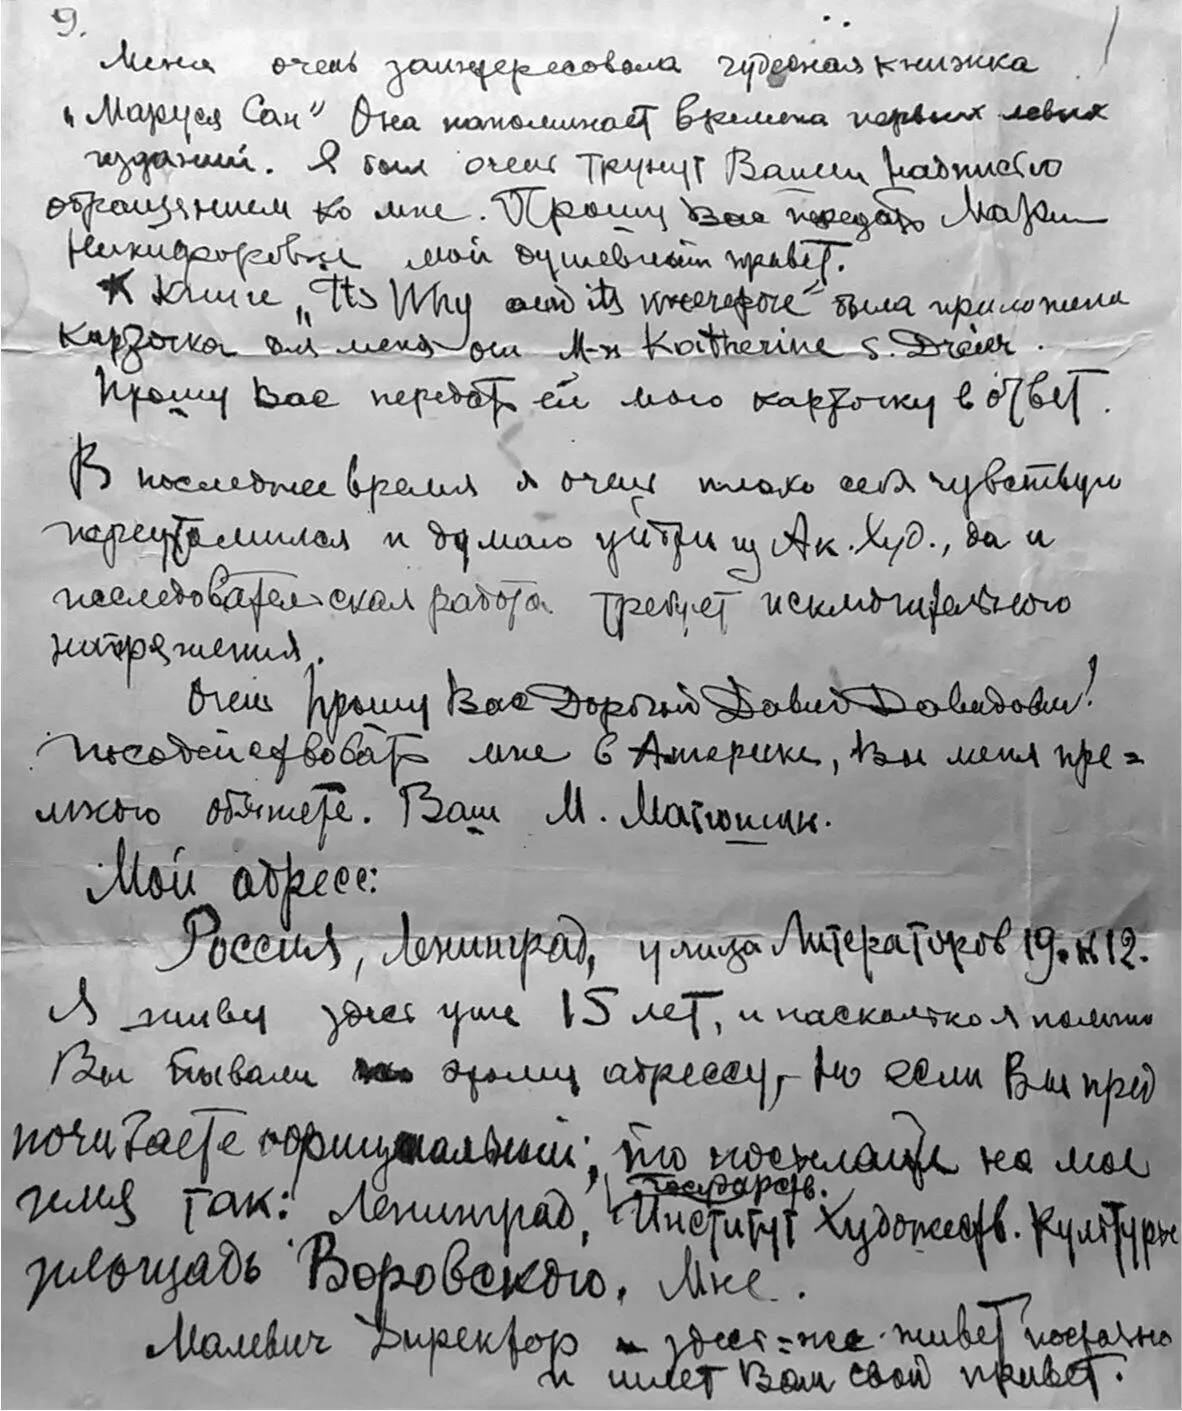 9.
Меня очень заинтересовала чудесная книжка
„Маруся Сан" Она напоминает времена первых левых
изданий. Я был очень тронут Вашей надписью
обращением ко мне. Прошу Вас передать Марии
Никифоровне мой душевный привет.
К книге „Its Why and its" была приложена
карточка для меня от М-м Katherine S. Dreier.
Прошу Вас передать ей мою карточку в ответ.
В последнее время я очень плохо себя чувствую
переутомился и думаю уйти из Ак. Худ., да и
исследовательская работа требует исключительного
напряжения.
Очень прошу Вас Дорогой Давид Давидович!
посодействовать мне в Америке, Вы меня пре=
много обяжете. Ваш М. Матюшин.
Мой адрес:
Россия, Ленинград, улица Литераторов 19. к 12.
Я живу здесь уже 15 лет, и насколько я помню
Вы бывали по этому адрессу, но если Вы пред
почитаете официальный, то посылайте на мое
имя так: Ленинград, Государств. Институт Художеств. Культуры
площадь Воровского. Мне.
Малевич Директор – здесь=же живет постоянно
и шлет Вам свой привет.